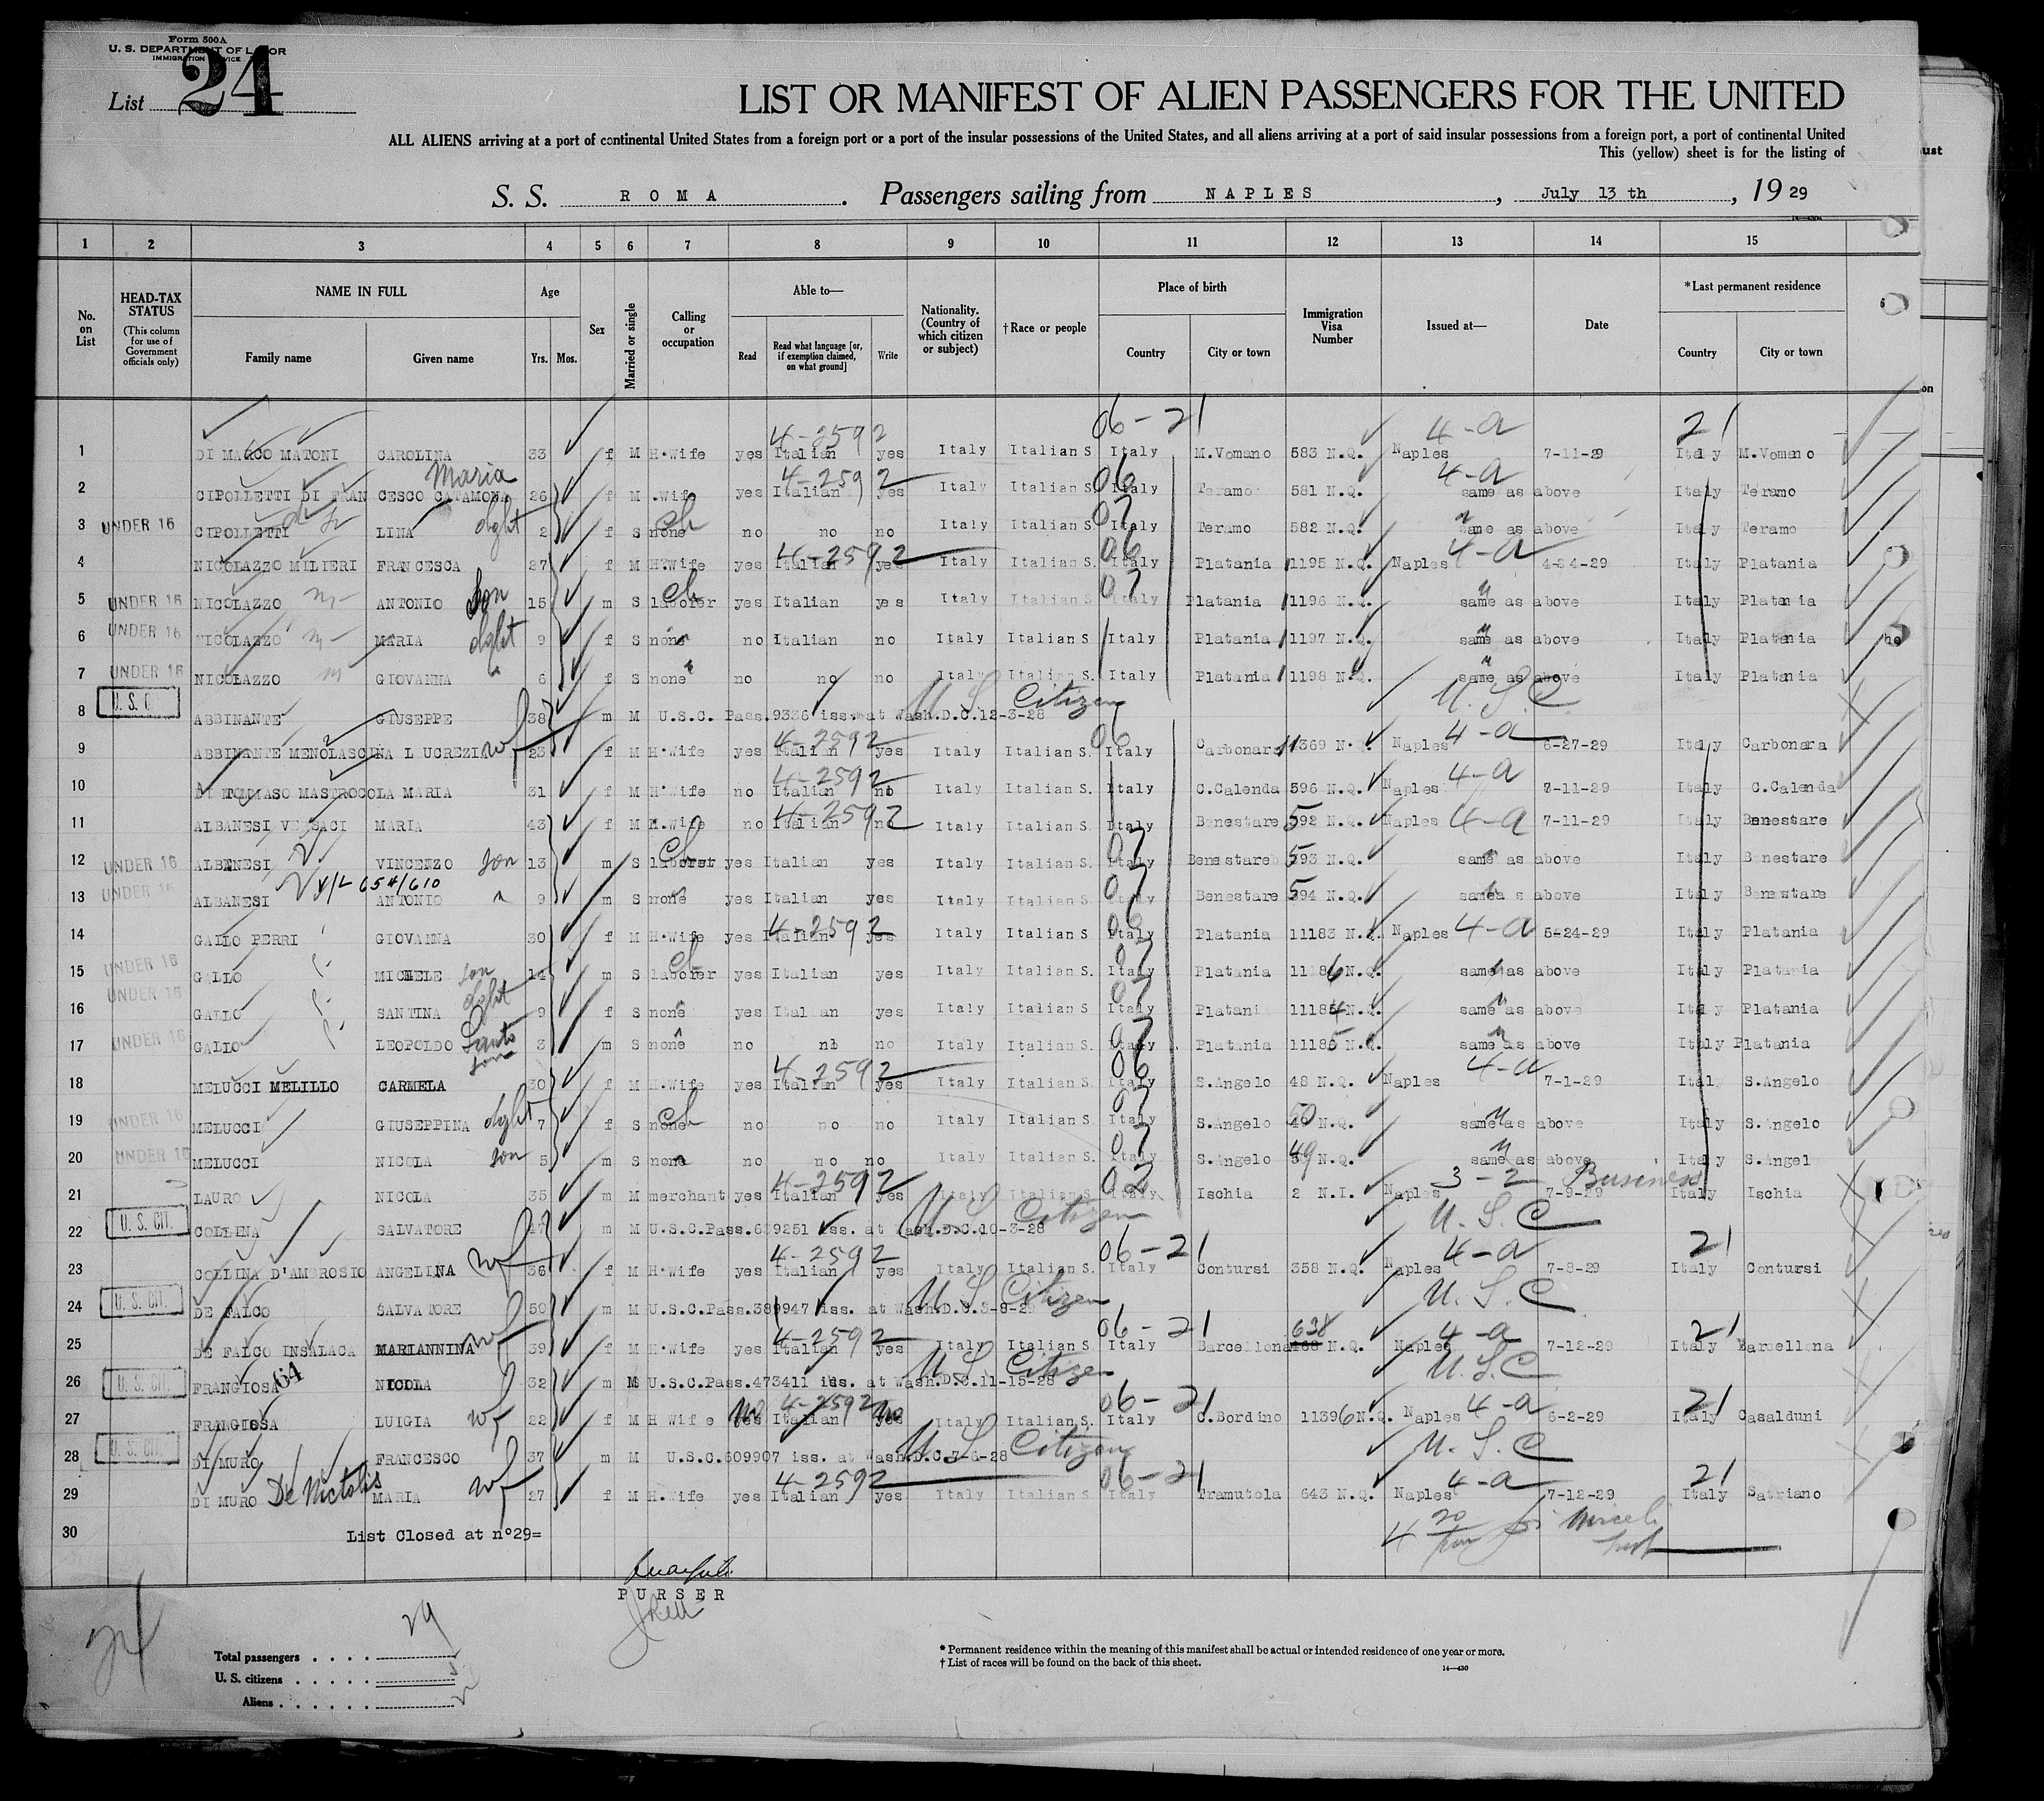 Form 500A
U. S. DEPARTMENT OF LABOR
IMMIGRATION SERVICE
List 24
LIST OR MANIFEST OF ALIEN PASSENGERS FOR THE UNITED
ALL ALIENS arriving at a port of continental United States from a foreign port or a port of the insular possessions of the United States, and all aliens arriving at a port of said insular possessions from a foreign port, a port of continental United
This (yellow) sheet is for the listing of
S. S. ROMA. Passengers sailing from NAPLES, July 13 th, 19 29
1 2 3 4 5 6 7 8 9 10 11 12 13 14 15
No. on List
HEAD-TAX STATUS (This column for use of Government officials only)
NAME IN FULL Family name Given name
Age Yrs. Mos.
Sex
Married or single
Calling or occupation
Able to— Read Read what language [or, if exemption claimed, on what ground] Write
Nationality. (Country of which citizen or subject)
†Race or people
Place of birth Country City or town
Immigration Visa Number
Issued at—
Date
*Last permanent residence Country City or town
06-21 4-a 21
4-2592
1 DI MARCO MATONI CAROLINA 33 f M H.Wife yes Italian yes Italy Italian S Italy M.Vomano 583 N.Q. Naples 7-11-29 Italy M.Vomano
Maria 4-2592 06 4-a
2 CIPOLLETTI DI FRAN CESCO CATAMONA 26 f M .Wife yes Italian yes Italy Italian S. Italy Teramo 581 N.Q. same as above Italy Teramo
3 UNDER 16 CIPOLLETTI LINA dght 2 f S none ch no no no Italy Italian S. 07 Italy Teramo 582 N.Q. same as above Italy Teramo
4-2592 06 4-a
4 NICOLAZZO MILIERI FRANCESCA 27 f M H.Wife yes Italian yes Italy Italian S. Italy Platania 1195 N.Q. Naples Italy Platania
5 UNDER 16 NICOLAZZO ANTONIO Son 15 m S laborer ch yes Italian yes Italy Italian S 07 Italy Platania 1196 N.Q. same as above Italy Platania
6 UNDER 16 NICOLAZZO MARIA dght 9 f S none no Italian no Italy Italian S. Italy Platania 1197 N.Q. same as above Italy Platania
7 UNDER 16 NICOLAZZO GIOVANNA " 6 f S none no no no Italy Italian S. Italy Platania 1198 N.Q. same as above Italy Platania
8 U. S. C ABBINANTE GIUSEPPE 38 m M U.S.C. Pass.9336 iss. at Wash.D.C.12-3-28 U S Citizen U.S.C
4-2592 06 4-a
9 ABBINANTE MENOLASCINA LUCREZIA wf 23 f M H.Wife yes Italian yes Italy Italian S. Italy Carbonara 1369 N.Q. Naples 6-27-29 Italy Carbonara
4-2592 4-a
10 DI TOMMASO MASTROCOLA MARIA 31 f M H.Wife no Italian no Italy Italian S. Italy C.Calenda 596 N.Q. Naples 7-11-29 Italy C.Calenda
4-2592
11 ALBANESI VERSACI MARIA 43 f M H.Wife no Italian no Italy Italian S. Italy Benestare 592 N.Q. Naples 4-a 7-11-29 Italy Benestare
12 UNDER 16 ALBANESI VINCENZO son 13 m S laborer ch yes Italian yes Italy Italian S. 07 Italy Benestare 593 N.Q. same as above Italy Benestare
V/L 654/610
13 UNDER 16 ALBANESI ANTONIO " 9 m S none yes Italian yes Italy Italian S. 07 Italy Benestare 594 N.Q. same as above Italy Benestare
4-2592 06
14 GALLO PERRI GIOVANNA 30 f M H.Wife yes Italian yes Italy Italian S Italy Platania 11183 N.Q. Naples 4-a 5-24-29 Italy Platania
15 UNDER 16 GALLO MICHELE son 14 m S laborer ch yes Italian yes Italy Italian S. 07 Italy Platania 11186 N.Q. same as above Italy Platania
16 UNDER 16 GALLO SANTINA dght 9 f S none yes Italian yes Italy Italian S. 07 Italy Platani 11184 N.Q. same as above Italy Platania
17 UNDER 16 GALLO LEOPOLDO Santo son 3 m S none no no no Italy Italian S. 07 Italy Platania 11185 N.Q. same as above Italy Platania
4-2592 06 4-a
18 MELUCCI MELILLO CARMELA 30 f M H.Wife yes Italian yes Italy Italian S. Italy S.Angelo 48 N.Q. Naples 7-1-29 Italy S.Angelo
19 UNDER 16 MELUCCI GIUSEPPINA dght 7 f S none ch no no no Italy Italian S. 07 Italy S.Angelo 50 N.Q. same as above Italy S.Angelo
20 UNDER 16 MELUCCI NICOLA son 5 m S none no no no Italy Italian S. 07 Italy S.Angelo 49 N.Q. same as above Italy S.Angel
4-2592 02 3-2 Business
21 LAURO NICOLA 35 m M merchant yes Italian yes Italy Italian S Italy Ischia 2 N.I. Naples 7-9-29 Italy Ischia
22 U. S. CIT. COLLINA SALVATORE 47 m M U.S.C.Pass.629251 iss. at Wash.D.C.10-3-28 U S Citizen U.S.C
4-2592 06-21 4-a 21
23 COLLINA D'AMBROSIO ANGELINA wf 36 f M H.Wife yes Italian yes Italy Italian S. Italy Contursi 358 N.Q. Naples 7-8-29 Italy Contursi
24 U. S. CIT. DE FALCO SALVATORE 50 m M U.S.C.Pass.389947 iss. at Wash.D.C.3-8-29 U S Citizen U.S.C
4-2592 06-21 638 4-a 21
25 DE FALCO INSALACA MARIANNINA wf 39 f M H.Wife yes Italian yes Italy Italian S Italy Barcellona N.Q. Naples 7-12-29 Italy Barcellona
26 U. S. CIT. FRANGIOSA 64 NICOLA 32 m M U.S.C.Pass.473411 iss. at Wash.D.C.11-15-28 U S Citizen U.S.C
4-2592 06-21 4-a 21
27 FRANGIOSA LUIGIA wf 22 f M H Wife no yes Italian no yes Italy Italian S. Italy C.Bordino 11396 N.Q. Naples 6-2-29 Italy Casalduni
28 U. S. CIT. DI MURO FRANCESCO 37 m M U.S.C.609907 iss. at Wash.D.C.7-6-28 U S Citizen U.S.C
4-2592 06-21 4-a 21
29 DI MURO De Nictolis MARIA wf 27 f M H.Wife yes Italian yes Italy Italian S Italy Tramutola 643 N.Q. Naples 7-12-29 Italy Satriano
30 List Closed at n°29=
PURSER
24
Total passengers 29
U. S. citizens 5
Aliens
* Permanent residence within the meaning of this manifest shall be actual or intended residence of one year or more.
† List of races will be found on the back of this sheet.
14—430